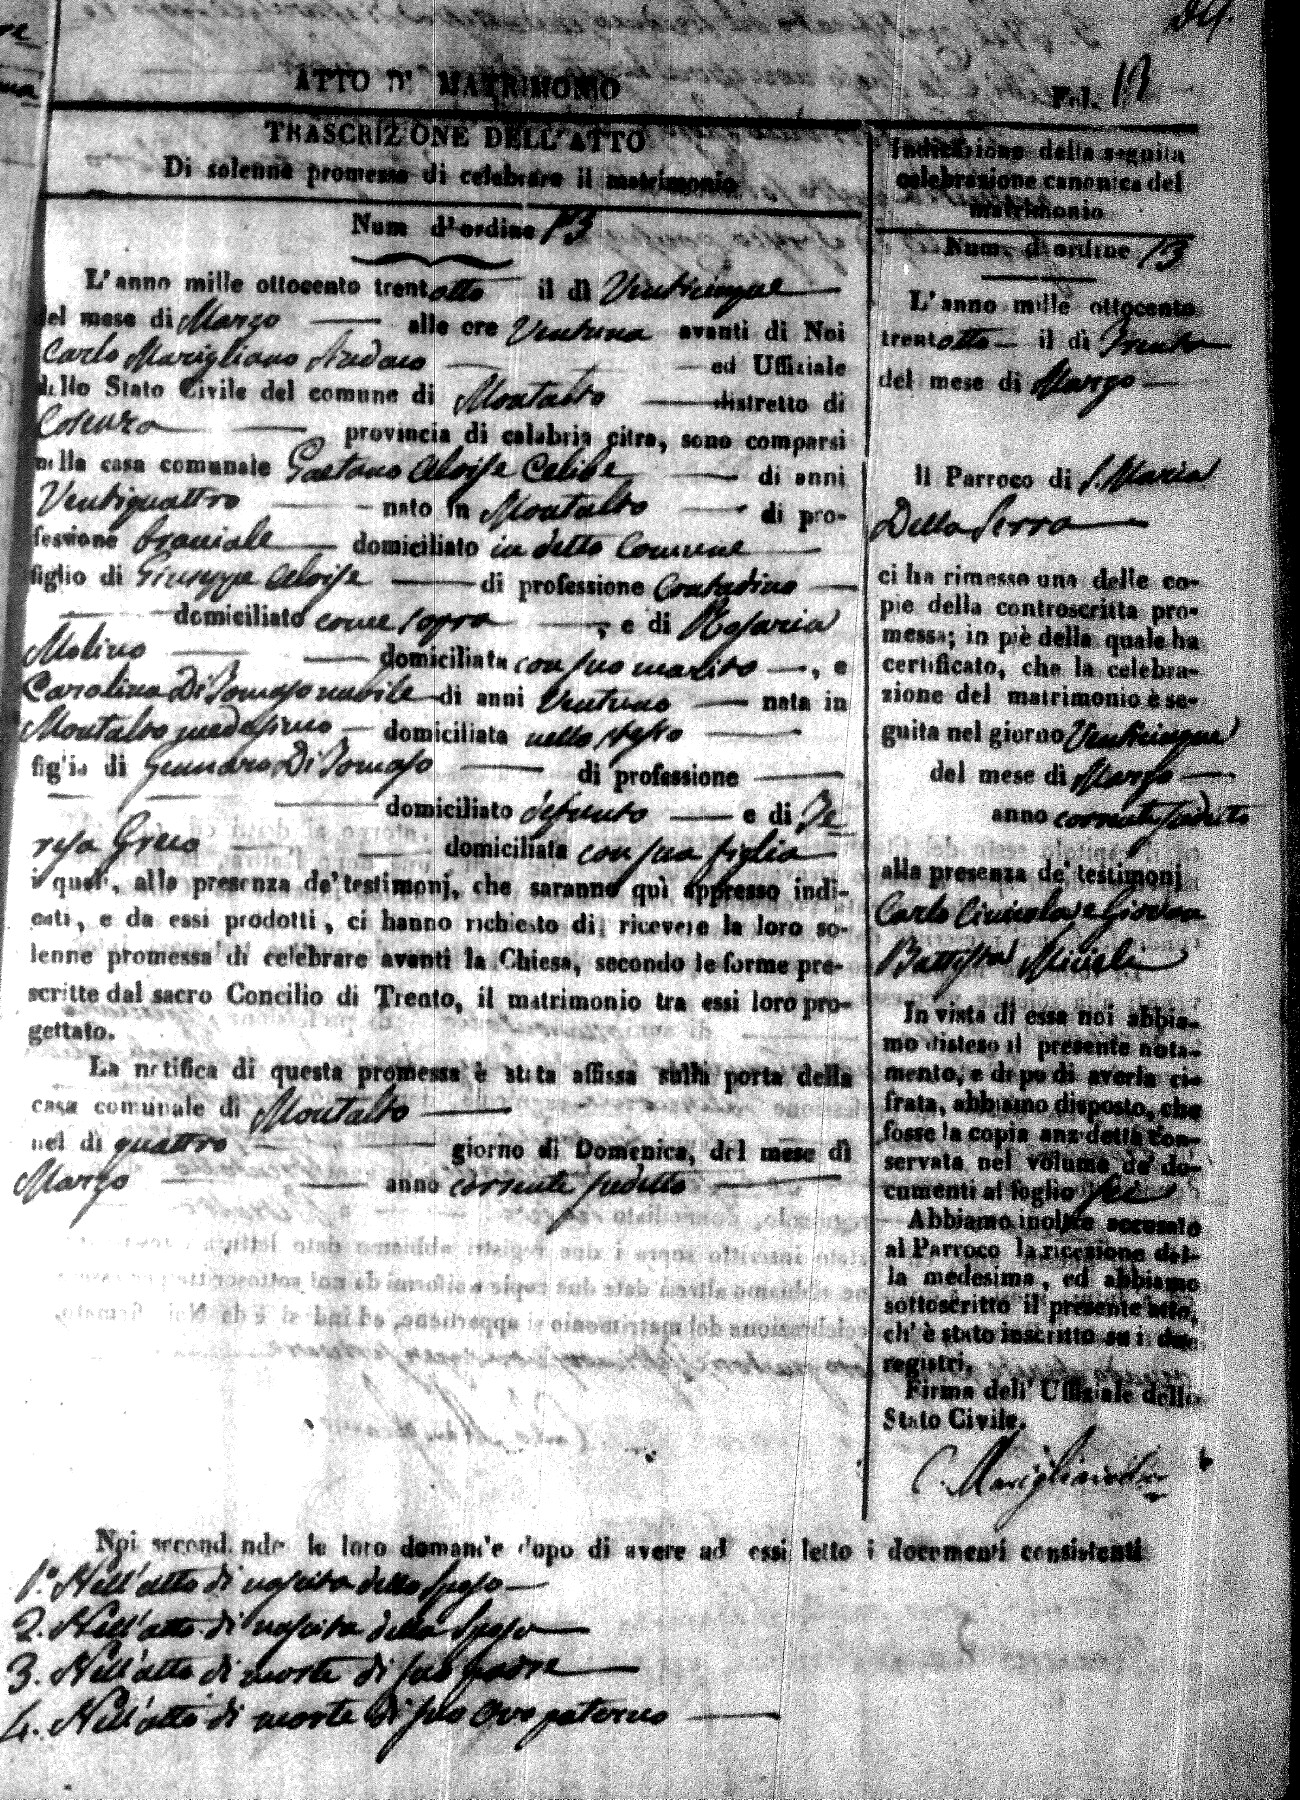 ATTO DI MATRIMONIO
Fol. 13
TRASCRIZIONE DELL'ATTO
Di solenne promessa di celebrare il matrimonio
Num d'ordine 13
L'anno mille ottocento trentotto il dì Venticinque
del mese di Marzo alle ore Ventuna avanti di Noi
Carlo Marigliano Sindaco ed Uffiziale
dello Stato Civile del comune di Montalto distretto di
Cosenza provincia di calabria citra, sono comparsi
nella casa comunale Gaetano Aloise Celibe di anni
Ventiquattro nato in Montalto di pro-
fessione braciale domiciliato in detto Comune
figlio di Giuseppe Aloise di professione Contadino
domiciliato come sopra, e di Rosaria
Molino domiciliata con suo marito, e
Carolina Di Tomaso nubile di anni Ventuno nata in
Montalto medesimo domiciliata nello stesso
figlia di Gennaro Di Tomaso di professione
domiciliato defunto e di Te
resa Greco domiciliata con sua figlia
i quali, alla presenza de' testimonj, che saranno quì appresso indi-
cati, e da essi prodotti, ci hanno richiesto di ricevere la loro so-
lenne promessa di celebrare avanti la Chiesa, secondo le forme pre-
scritte dal sacro Concilio di Trento, il matrimonio tra essi loro pro-
gettato.
La notifica di questa promessa è stata affissa sulla porta della
casa comunale di Montalto
nel dì quattro giorno di Domenica, del mese di
Marzo anno corrente sudetto
Indicazione della seguita
celebrazione canonica del
matrimonio
Num. d'ordine 13
L'anno mille ottocento
trentotto il dì Trenta
del mese di Marzo
Il Parroco di S. Maria
Della Serra
ci ha rimesso una delle co-
pie della controscritta pro-
messa; in piè della quale ha
certificato, che la celebra-
zione del matrimonio è se-
guita nel giorno Venticinque
del mese di Marzo
anno corrente sudetto
alla presenza de' testimonj
Carlo e Giovan
Battista Miceli
In vista di essa noi abbia-
mo disteso il presente nota-
mento, e dopo di averla ci-
frata, abbiamo disposto, che
fosse la copia anzidetta con-
servata nel volume de' do-
cumenti al foglio sei
Abbiamo inoltre accusato
al Parroco la ricezione del-
la medesima, ed abbiamo
sottoscritto il presente atto,
ch' è stato inscritto su i due
registri.
Firma dell' Uffiziale dello
Stato Civile.
C. Marigliano
Noi secondando le loro domande dopo di avere ad essi letto i documenti consistenti
1.º Nell'atto di nascita dello sposo
2. Nell'atto di nascita della sposa
3. Nell'atto di morte di suo padre
4. Nell'atto di morte di suo avo paterno